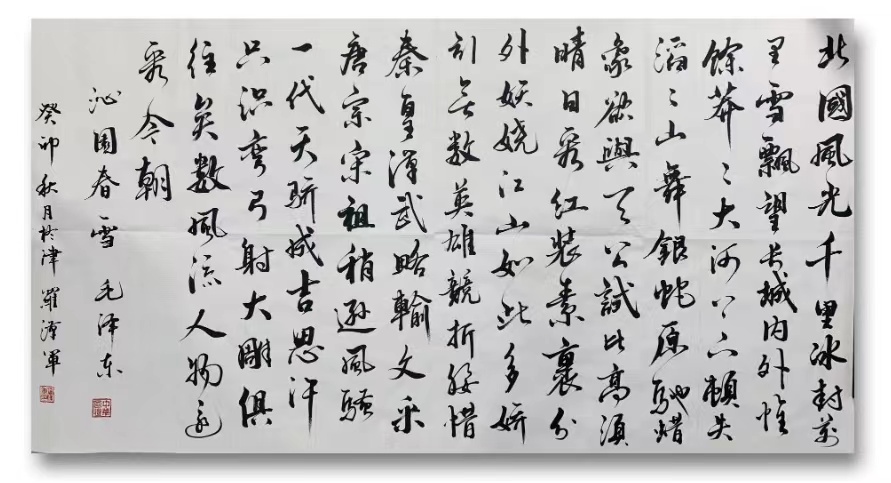 北國風光千里冰封萬
里雪飄望长城内外惟
餘莽〻大河上下頓失
滔〻山舞銀蛇原馳蜡
象欲與天公試比高須
晴日看紅装素裹分
外妖娆江山如此多娇
引无數英雄競折腰惜
秦皇漢武略輸文采
唐宗宋祖稍遜風騷
一代天骄成吉思汗
只识弯弓射大雕俱
往矣數風流人物还
看今朝
沁園春雪 毛泽东
癸卯秋月於津 羅